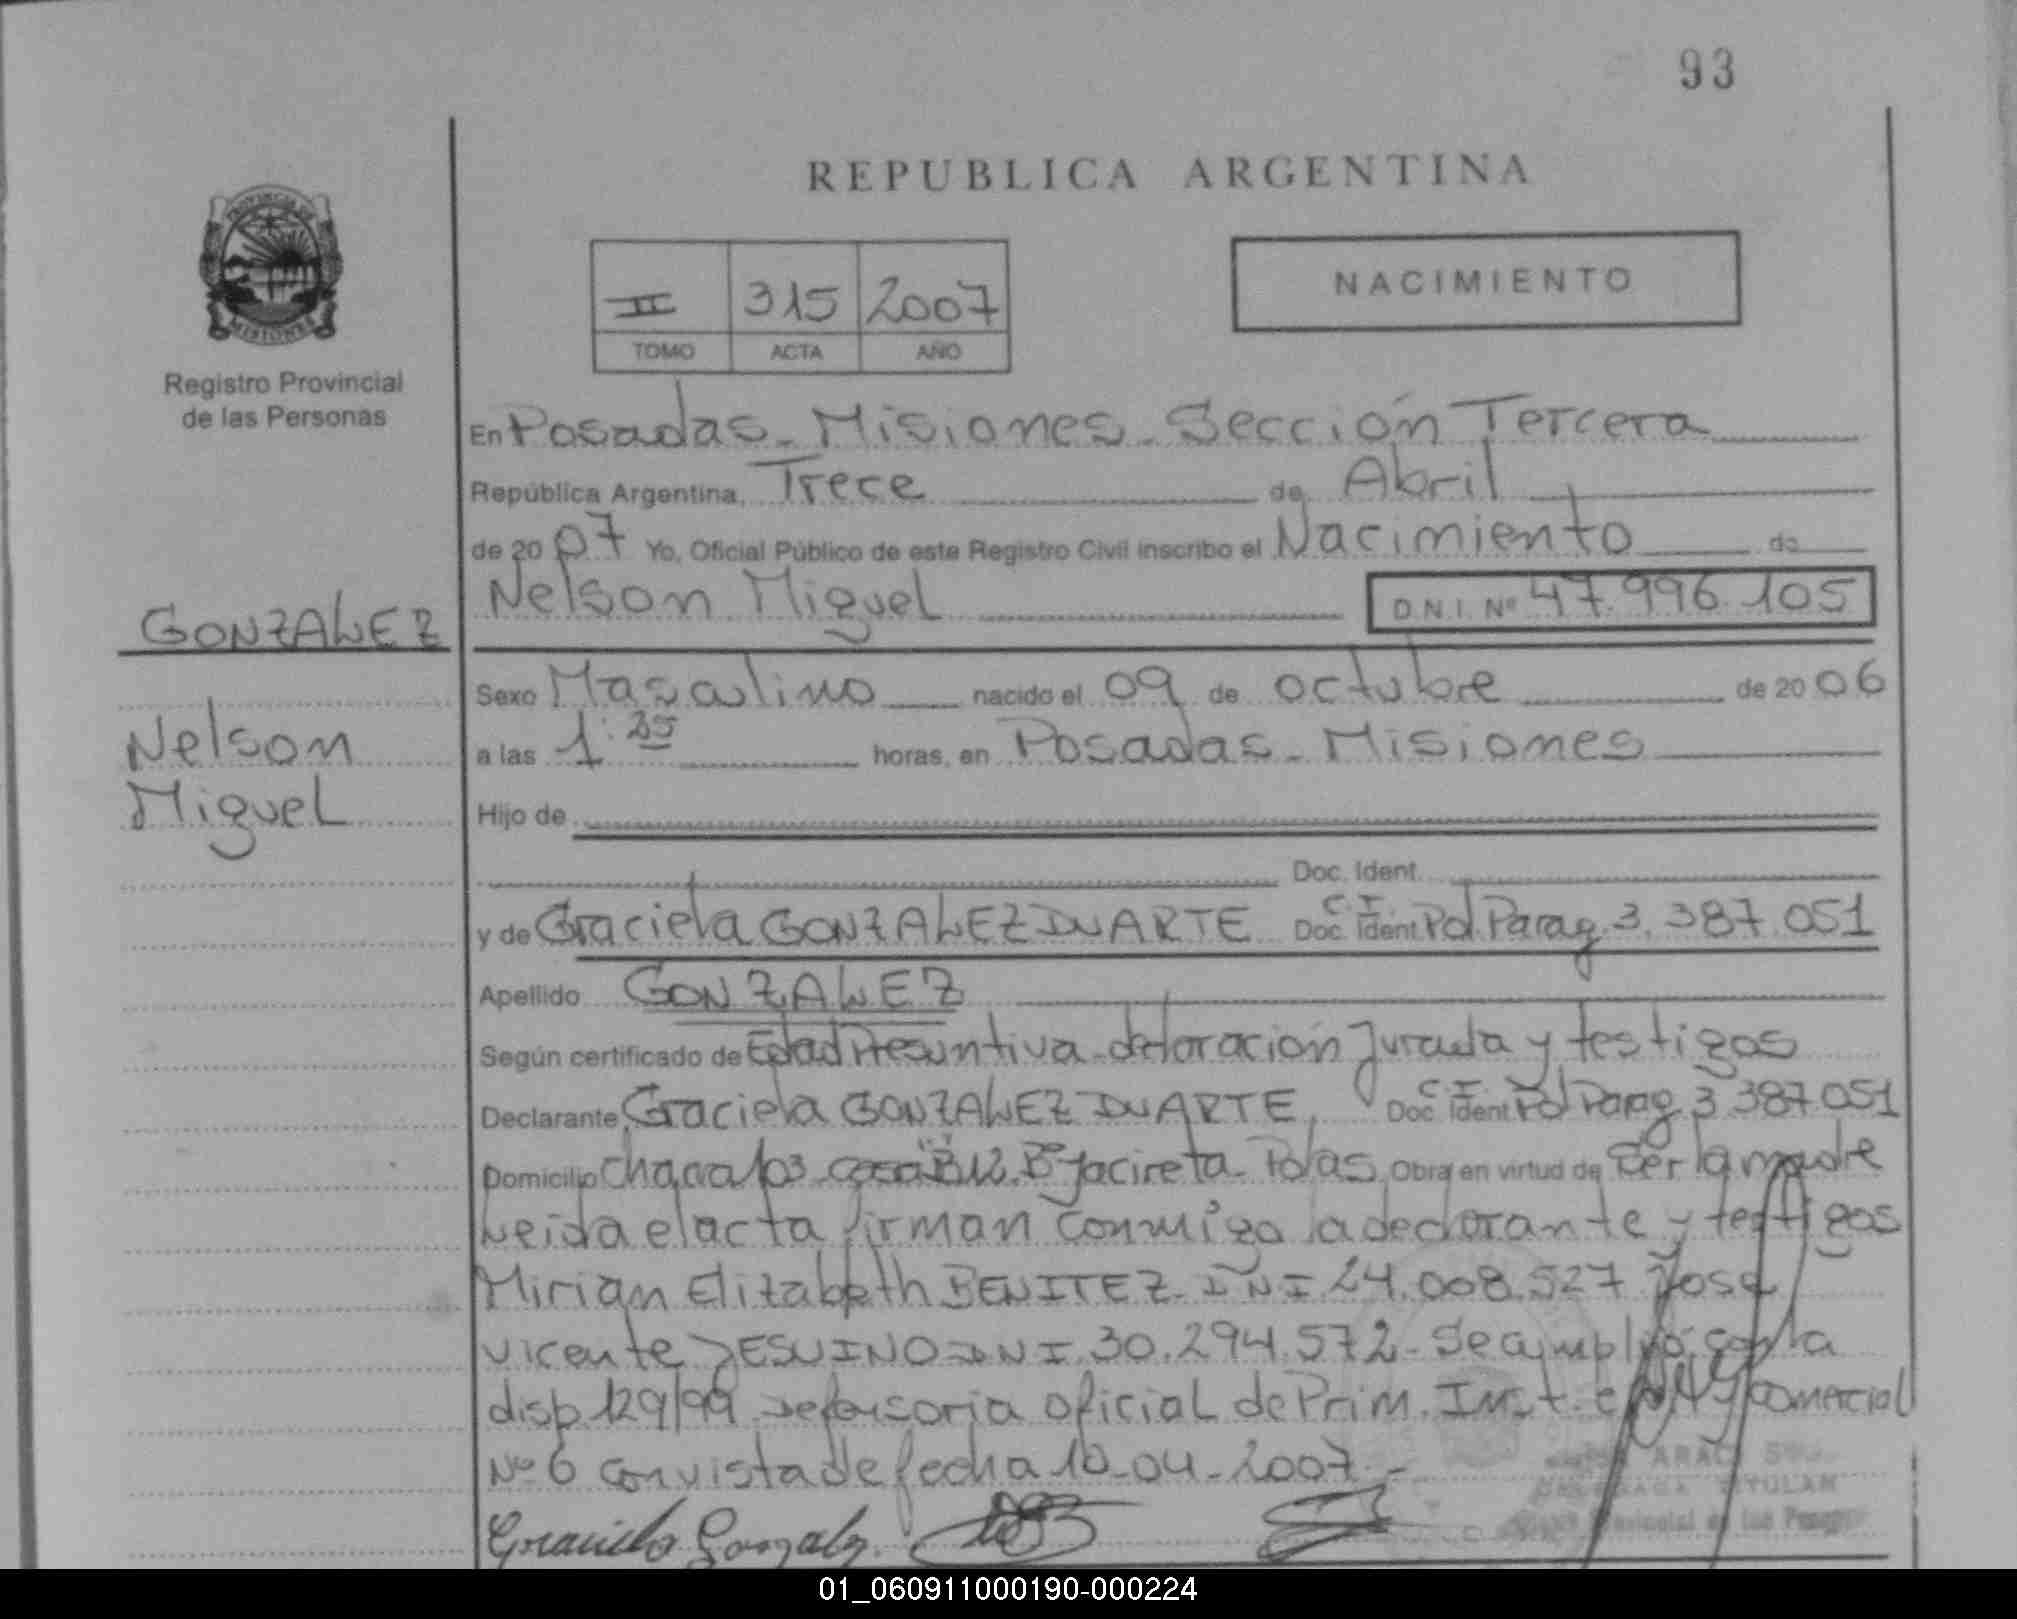 93
REPUBLICA ARGENTINA
PROVINCIA DE
MISIONES
Registro Provincial
de las Personas
II 315 2007
TOMO ACTA AÑO
NACIMIENTO
En Posadas - Misiones - Sección Tercera
República Argentina, Trece de Abril
de 2007 Yo, Oficial Público de este Registro Civil inscribo el Nacimiento de
Nelson Miguel D.N.I. Nº 47.996.105
GONZALEZ
Nelson
Miguel
Sexo Masculino nacido el 09 de octubre de 2006
a las 1: horas, en Posadas - Misiones
Hijo de
Doc. Ident.
y de Graciela GONZALEZ DUARTE Doc. Ident. C.I. Pol. Parag. 3.387.051
Apellido GONZALEZ
Según certificado de Edad Presuntiva - decloración Jurada y testigos
Declarante Graciela GONZALEZ DUARTE, Doc. Ident. C.I. Pol Parag 3.387.051
Domicilio chacra casa Bº Yacireta - Pdas. Obra en virtud de Ser la madre
Leida el acta firman conmigo la declorante y testigos
Mirian Elizabeth BENITEZ - DNI 24.008.527 Jose
Vicente JESUINO DNI 30.294.572 - Se cumplió con la
disp 129/99 Defensoria Oficial de Prim. Inst. Comercial
Nº 6 con vista de fecha 10-04-2007 -
Graciela Gonzalez
TITULAR
Provincial de las Personas
01_060911000190-000224